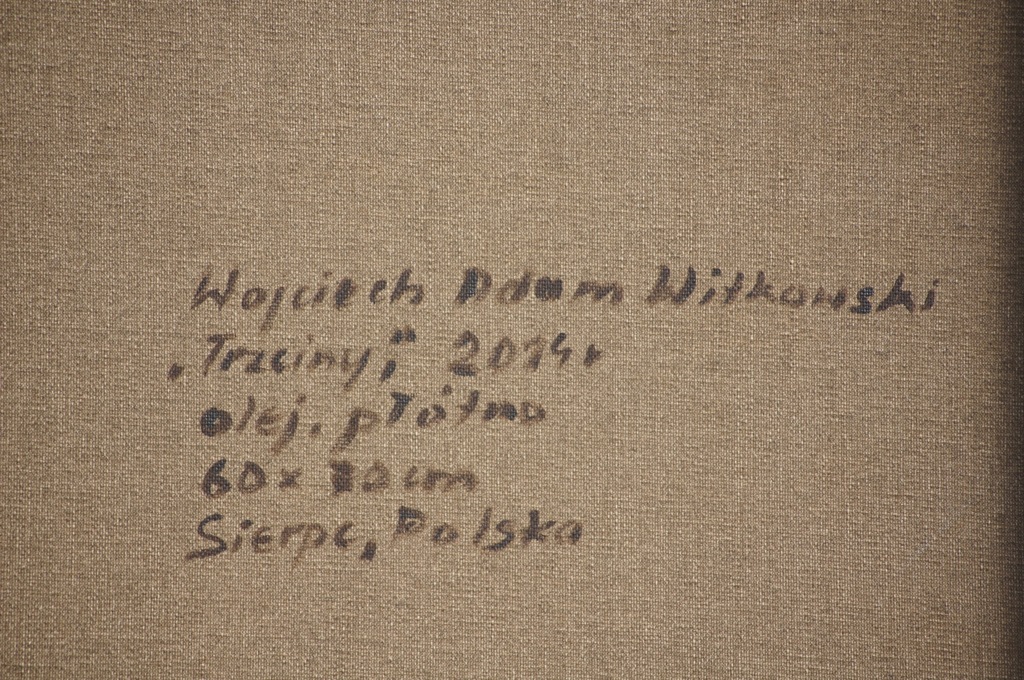 Wojciech Adam Witkowski
„Trzciny", 2014r
olej. płótno
60x cm
Sierpc, Polska